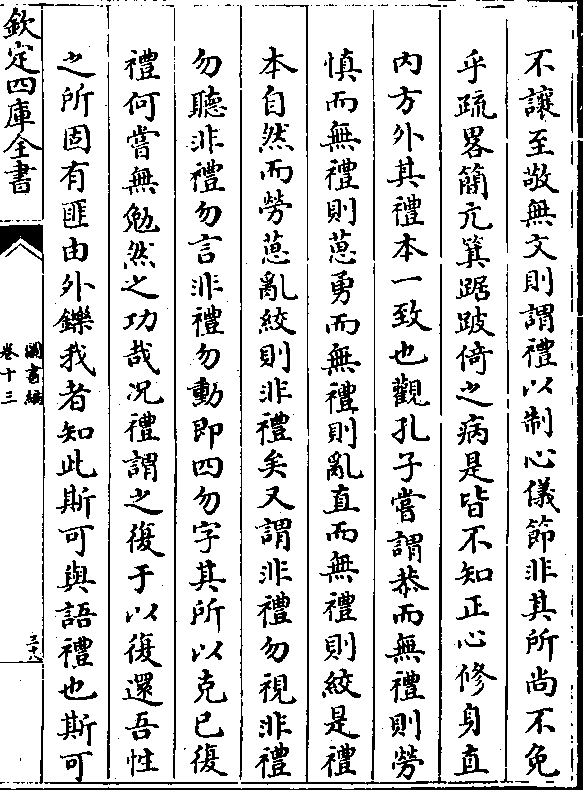 不讓至敬無文則謂禮以制心儀節非其所尚不免
乎疏畧簡亢箕踞跛倚之病是皆不知正心修身直
內方外其禮本一致也觀孔子嘗謂恭而無禮則勞
慎而無禮則葸勇而無禮則亂直而無禮則絞是禮
本自然而勞葸亂絞則非禮矣又謂非禮勿視非禮
勿聽非禮勿言非禮勿動即四勿字其所以克已復
禮何嘗無勉然之功哉况禮謂之復于以復還吾性
之所固有匪由外鑠我者知此斯可與語禮也斯可
欽定四庫全書
圖書編
卷十三
三十八